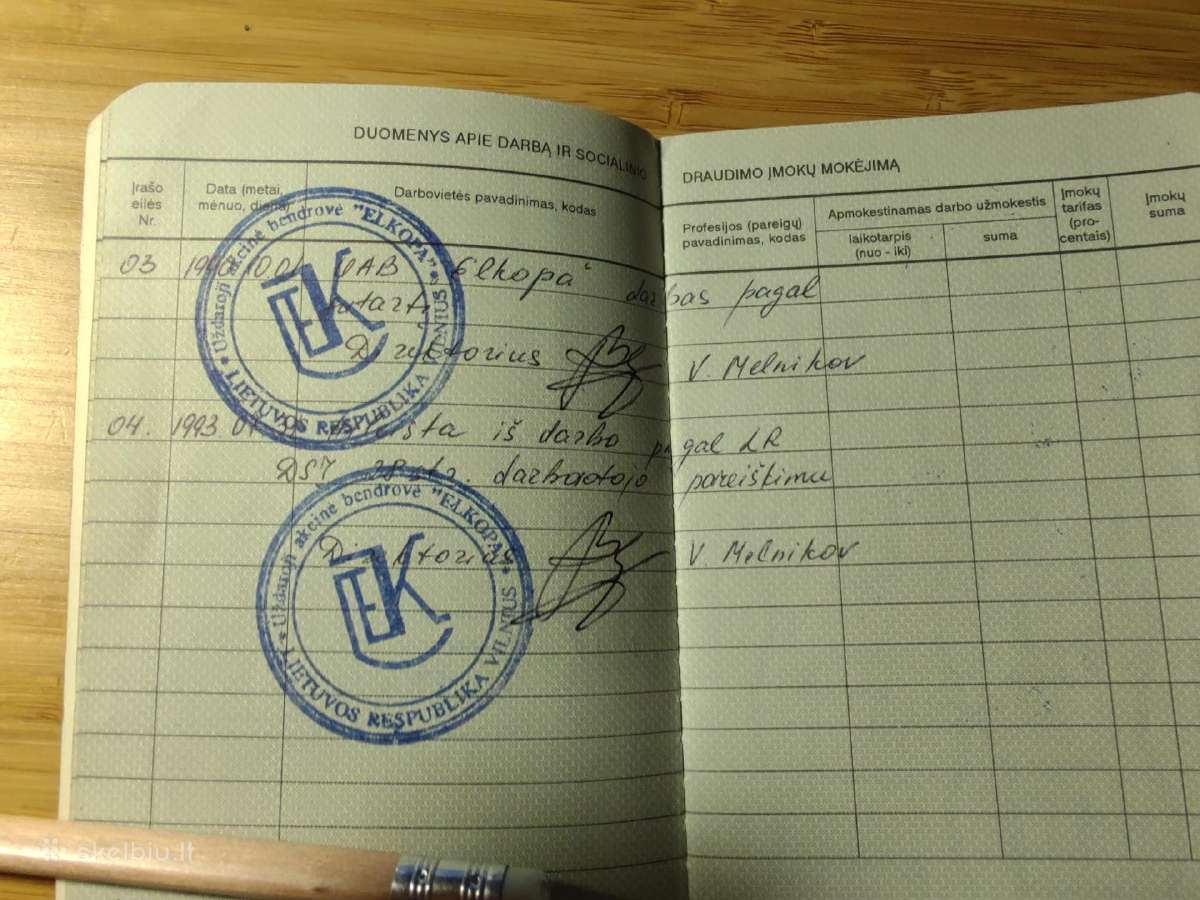 DUOMENYS APIE DARBĄ IR SOCIALINIO DRAUDIMO ĮMOKŲ MOKĖJIMĄ
Įrašo eilės Nr.
Data (metai, mėnuo, diena)
Darbovietės pavadinimas, kodas
Profesijos (pareigų) pavadinimas, kodas
Apmokestinamas darbo užmokestis
laikotarpis (nuo - iki)
suma
Įmokų tarifas (pro-centais)
Įmokų suma
03 UAB "Elkopa" darbas pagal
sutartį
Direktorius V. Melnikov
04. 1993 iš darbo pagal LR
DSĮ 28 str. darbuotojo pareiškimu
Direktorius V. Melnikov
Uždaroji akcinė bendrovė "ELKOPA"
LIETUVOS RESPUBLIKA VILNIUS
EK
Uždaroji akcinė bendrovė "ELKOPA"
LIETUVOS RESPUBLIKA VILNIUS
EK
skelbiu.lt